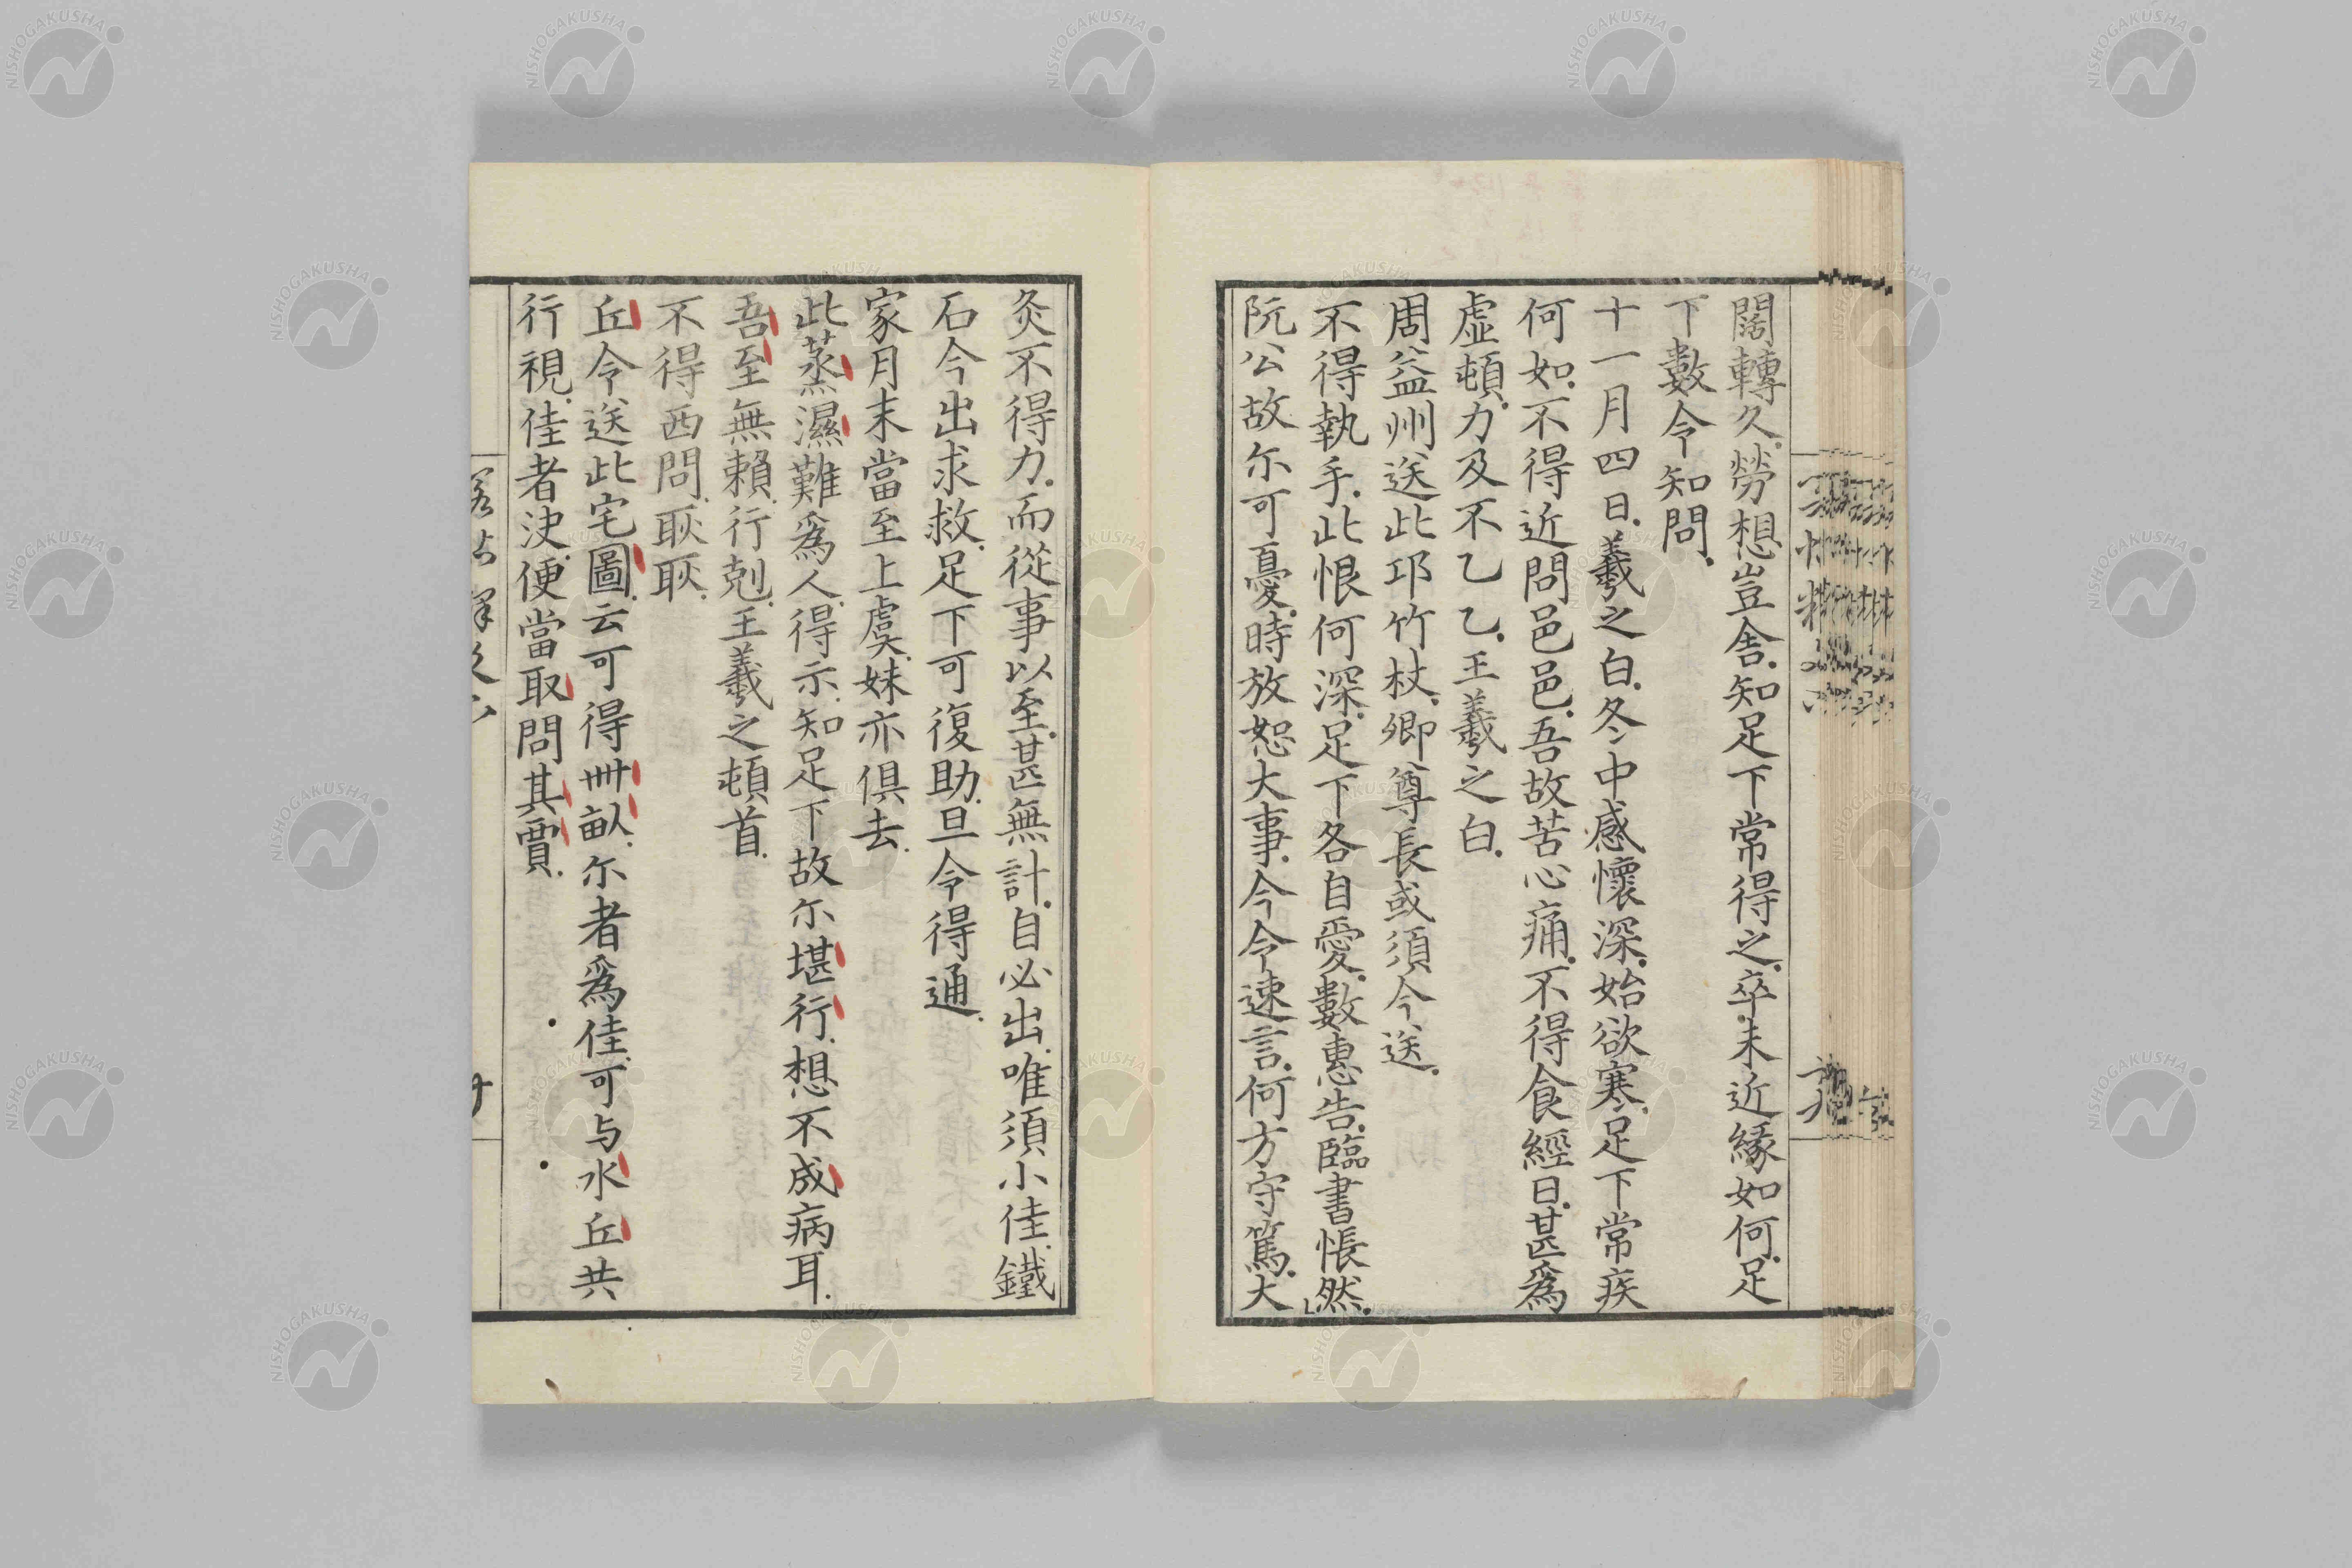 闊轉久勞想豈舍知足下常得之卒未近緣如何足
下數令知問
十一月四日羲之白冬中感懷深始欲寒足下常疾
何如不得近問邑邑吾故苦心痛不得食經日甚為
虛頓力及不乙乙王羲之白
周益州送此邛竹杖卿尊長或須今送
不得執手此恨何深足下各自愛數惠告臨書悵然
阮公故尒可憂時放恕大事今令速言何方守篤大
灸不得力而從事以至甚無計自必出唯須小佳鐵
石今出求救足下可復助旦令得通
家月末當至上虞妹亦俱去
此蒸濕難為人得示知足下故尒堪行想不成病耳
吾至無賴行剋王羲之頓首
不得西問耿耿
丘令送此宅圖云可得卌畝尒者為佳可与水丘共
行視佳者決便當取問其賈
NISHOGAKUSHA